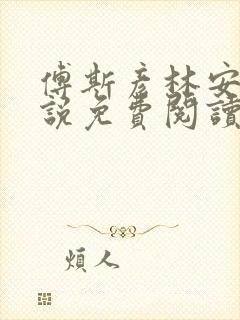 傅斯彥林安
說免費閱讀
煩人